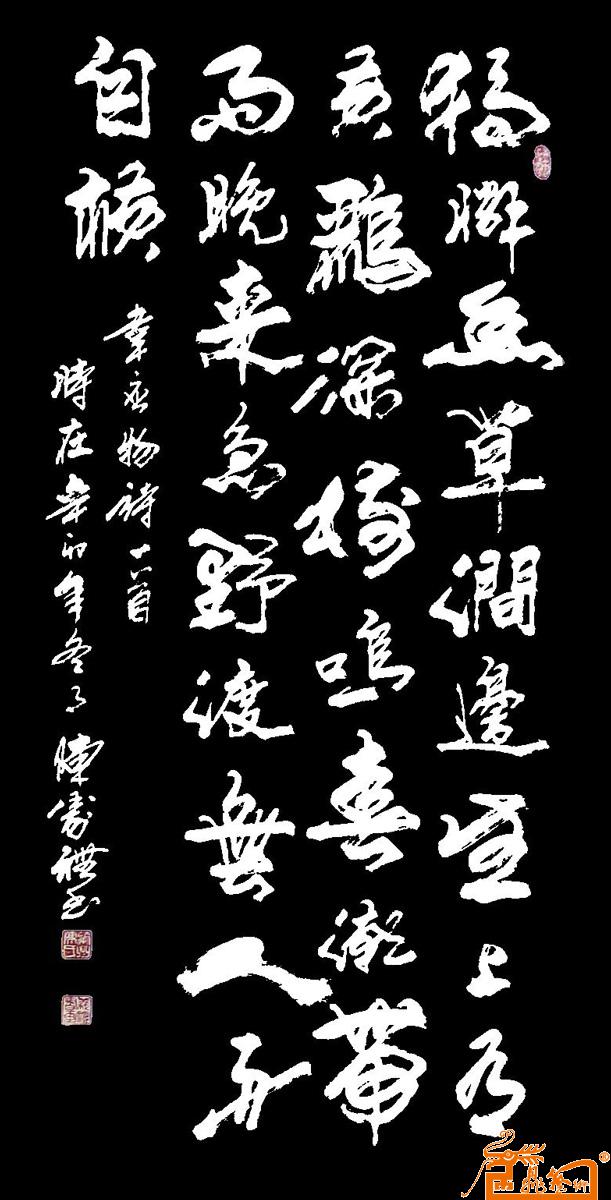 獨憐幽草澗邊生上有
黃鸝深樹鳴春潮帶
雨晚來急野渡無人舟
自橫
韋應物詩一首
時在辛卯年冬月陳禮書